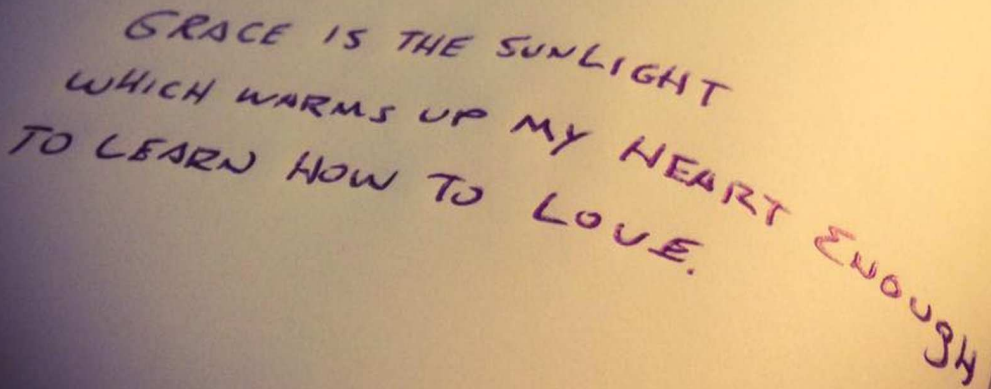 GRACE IS THE SUNLIGHT
WHICH WARMS UP MY HEART ENOUGH
TO LEARN HOW TO LOVE.